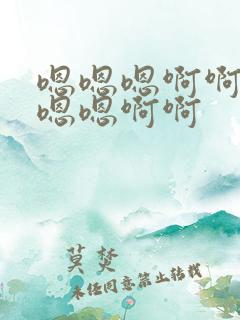 嗯嗯嗯啊啊
嗯嗯啊啊
莫焚
未经同意禁止转载